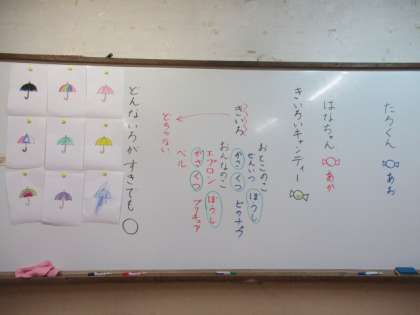 たろくん あお
はなちゃん あか
きいろいキャンディー
おとこのこ
ずぼん ぼうし
かさ くつ
きいろ
おんなのこ
エプロン ぼうし
かさ くつ
ベル
とらない
どんないろが すきても ○